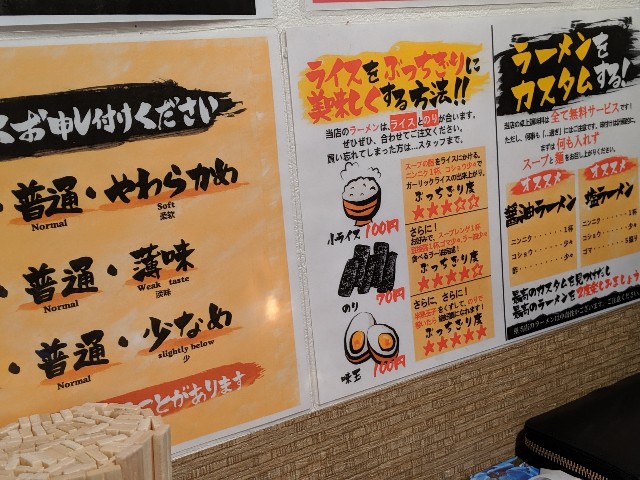 くお申し付けください
・普通・やわらかめ
Normal
Soft
柔软
・普通・薄味
Normal
Weak taste
淡味
・普通・少なめ
Normal
slightly below
少
ことがあります
ライスをぶっちぎりに
美味しくする方法!!
当店のラーメンは、ライスとのりが合います。
ぜひぜひ、合わせてご注文ください。
買い忘れてしまった方は…スタッフまで。
小ライス 100円
スープの脂をライスにかける。
ニンニク1杯、コショウ少々で
ガーリックライスの出来上がり。
ぶっちぎり度
★★★☆☆
のり 90円
さらに!
お好みで、スープレンゲ1杯
食べるラー油適量!
ぶっちぎり度
★★★★☆
味玉 100円
さらに、さらに!
ぶっちぎり度
★★★★★
ラーメンを
カスタムする!
当店の卓上調味料は全て無料サービスです!
まずは何も入れず
スープと麺をお召し上がりください。
オススメ
醤油ラーメン
ニンニク・・・1杯
コショウ・・・少々
酢・・・少々
オススメ
塩ラーメン
ニンニク・・・1杯
コショウ・・・少々
ゴマ・・・5振り
最高のカスタムを見つけだし
最高のラーメンを2度楽しみましょう!